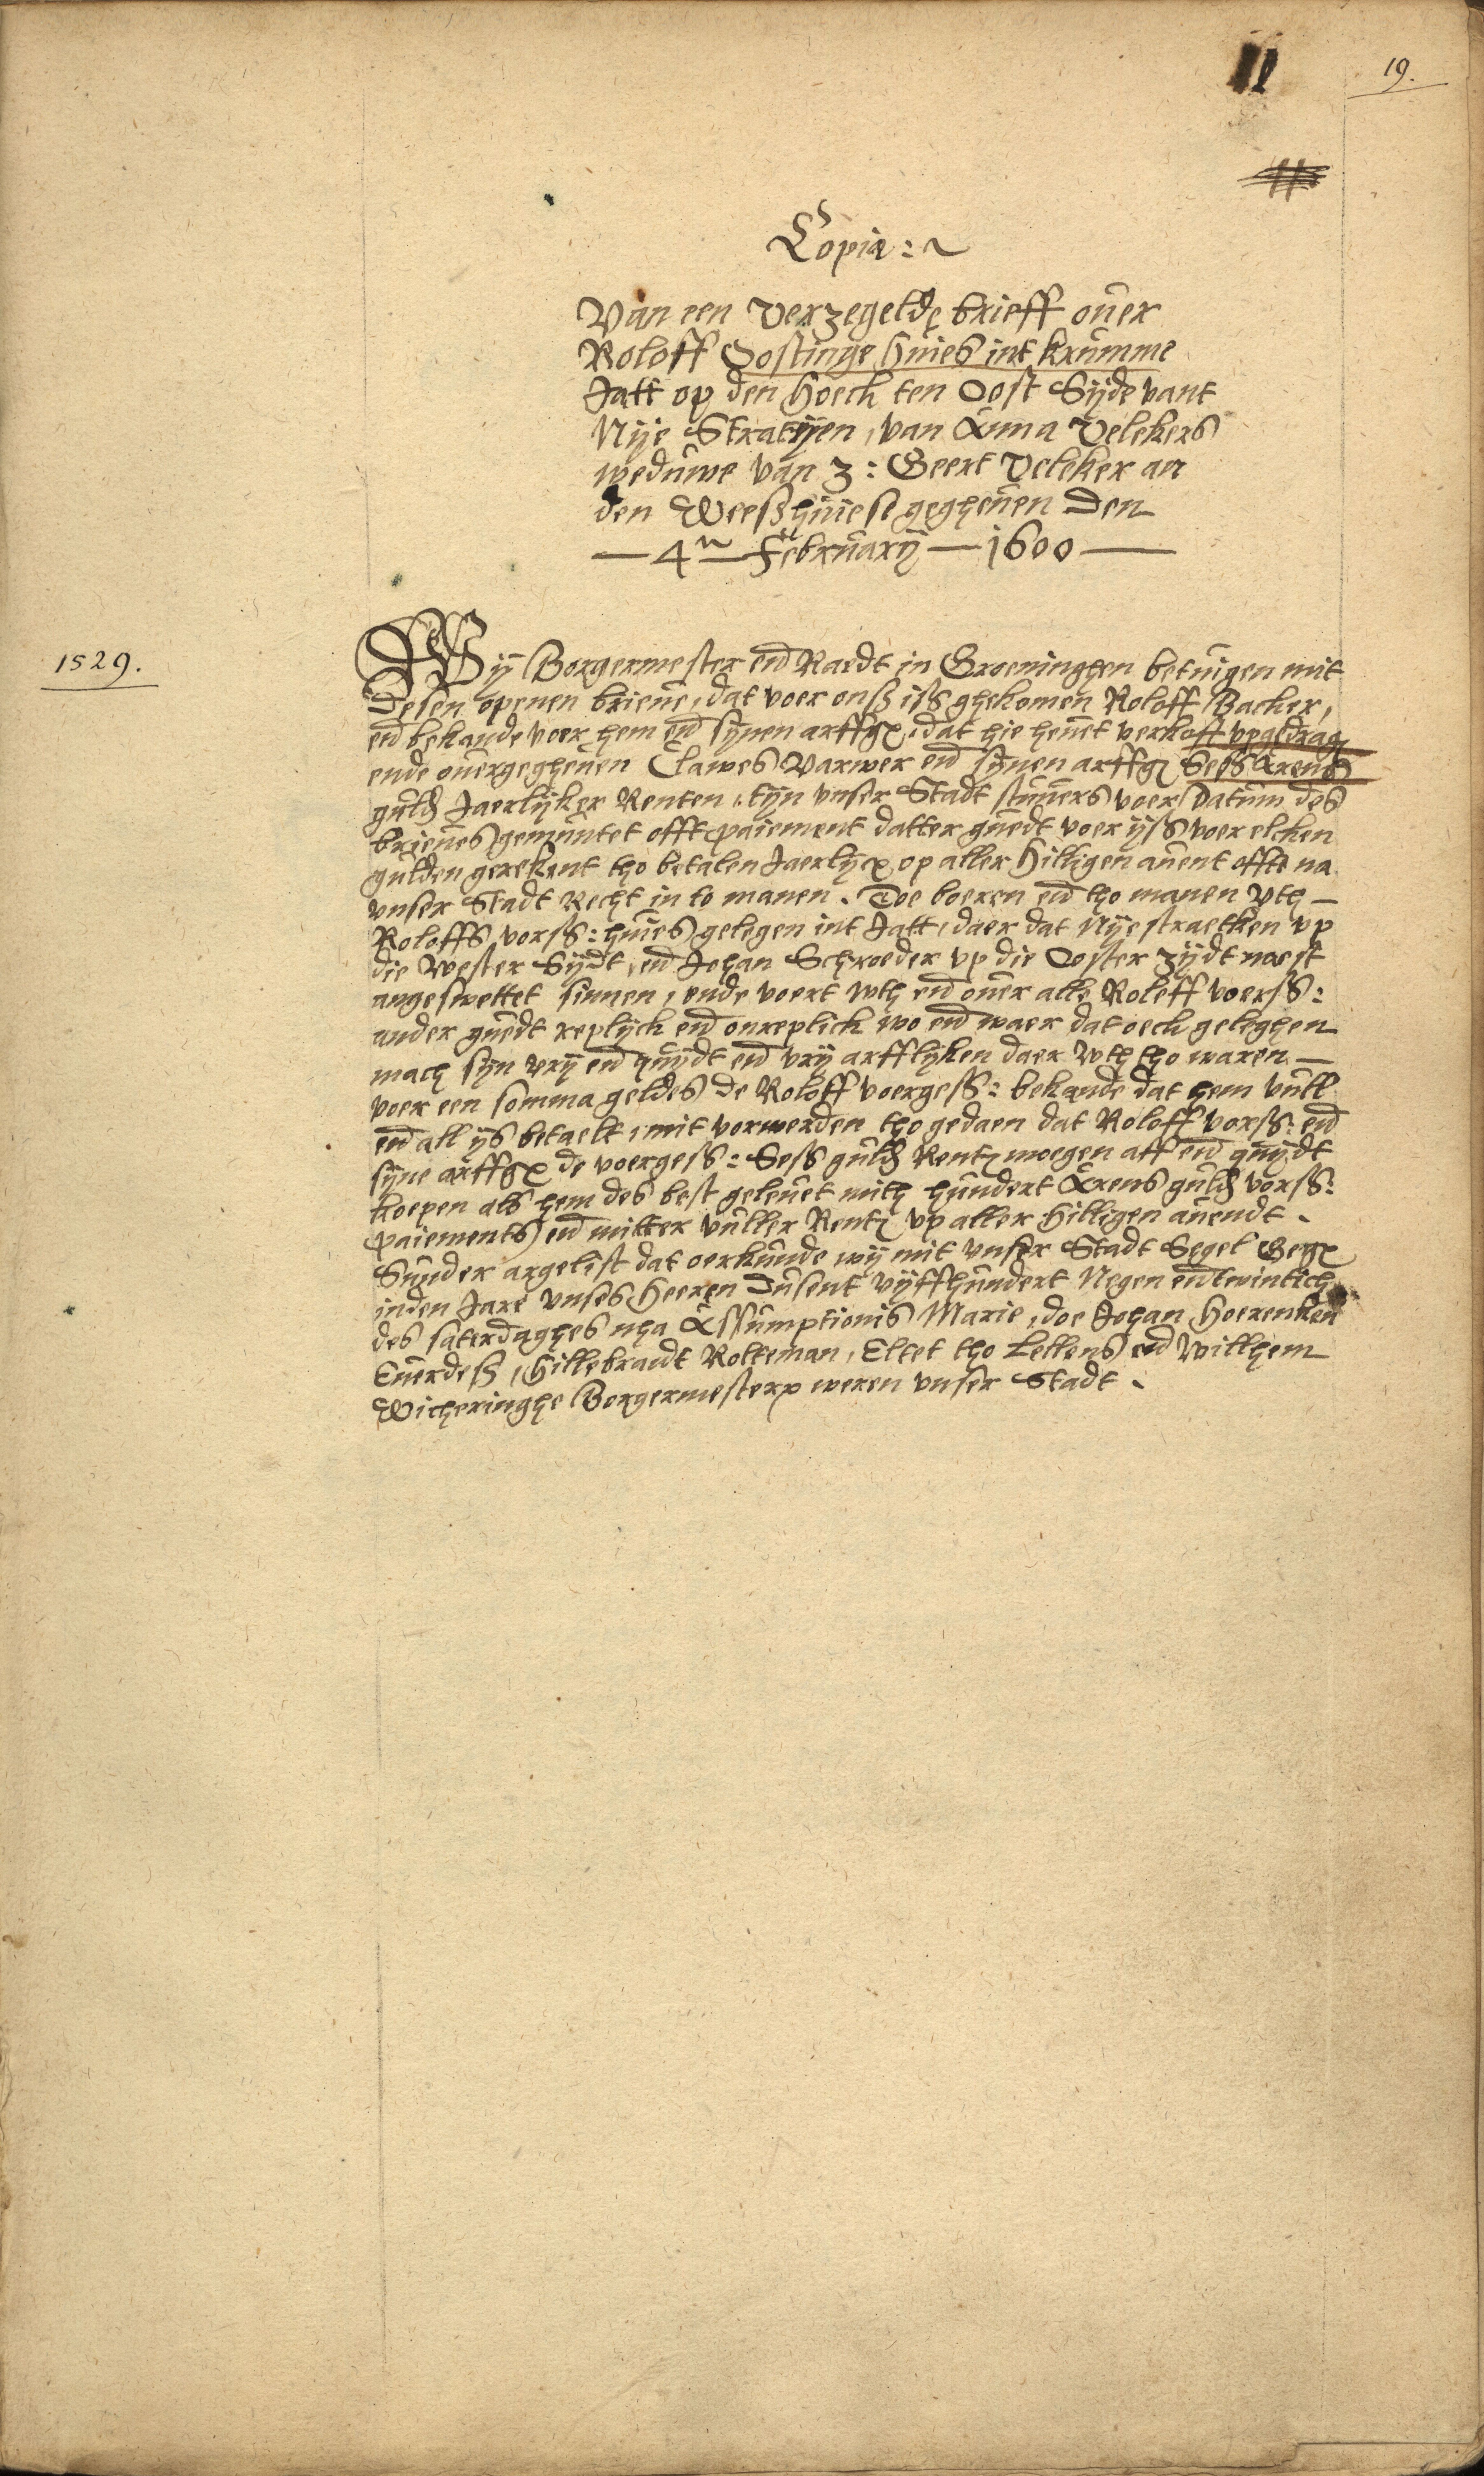 11
19.
Copia: ~
Van een verzegelde brieff ouer
Roloff Oostinge huies int krumme
Jatt op den hoeck ten Oost Sijde vant
Nije Stratijen, van Anna Velekers
weduwe van z: Geert Veleker an
den Weeshuiese gegheuen den
— 4n Februarij — 1600 —
1529.
Wij Borgermester end Raedt in Groeninghen betuigen mit
desen openen brieue, dat voer onß iss ghekomen Roloff Backer,
end bekande voer hem end synen arffgen, dat hie heuet verkoft vpgedragen
ende ouergegheuen Clawes Varwer end synen arffgen Sess Arens
guld Jaerlijker Renten, tyn vnser Stadt stuuers voer Datum des
brieues gemuntet offt paiement datter guedt voer ijss voer elcken
gulden gerekent tho betalen Jaerlijcx op aller hilligen auent offte na
vnser Stadt Recht in to manen. Toe boeren end tho manen vth —
Roloffs vorss: huies gelegen int Jatt, daer dat Nije straetken vp
die Wester Sijdt, end Johan Schroeder vp die Ooster zijdt naest
angeswettet sinnen, ende voert wth end ouer alle Roloff voerss:
ander guedt replijck end onreplick wo end waer dat oeck geleghen
mach sijn vrij end quijdt end vrij arfflyken daer wth tho waren —
voer een somma geldes de Roloff voergess: bekande dat hem vull
end all ys betaelt, mit vorwerden tho gedaen dat Roloff vorss: end
syne arffgen de voergess: Sess guld Rente moegen aff end quijdt
koepen als hem des best geleuet mith hundert Arens guld vorss:
paiements end mitter vuller Rente vp aller hilligen auendt.
Sunder argelist dat oerkunde wij mit vnser Stadt Segel Gegeuen
inden Jare vnses heeren Dusent vijffhundert Negen end twintich
des saterdaghes nha Assumptionis Marie, doe Johan Hoerenken
Euerdeß, Hillebrandt Rolteman, Eltet tho Lellens end Willhem
Wicheringhe Borgermesteren weren vnser Stadt.